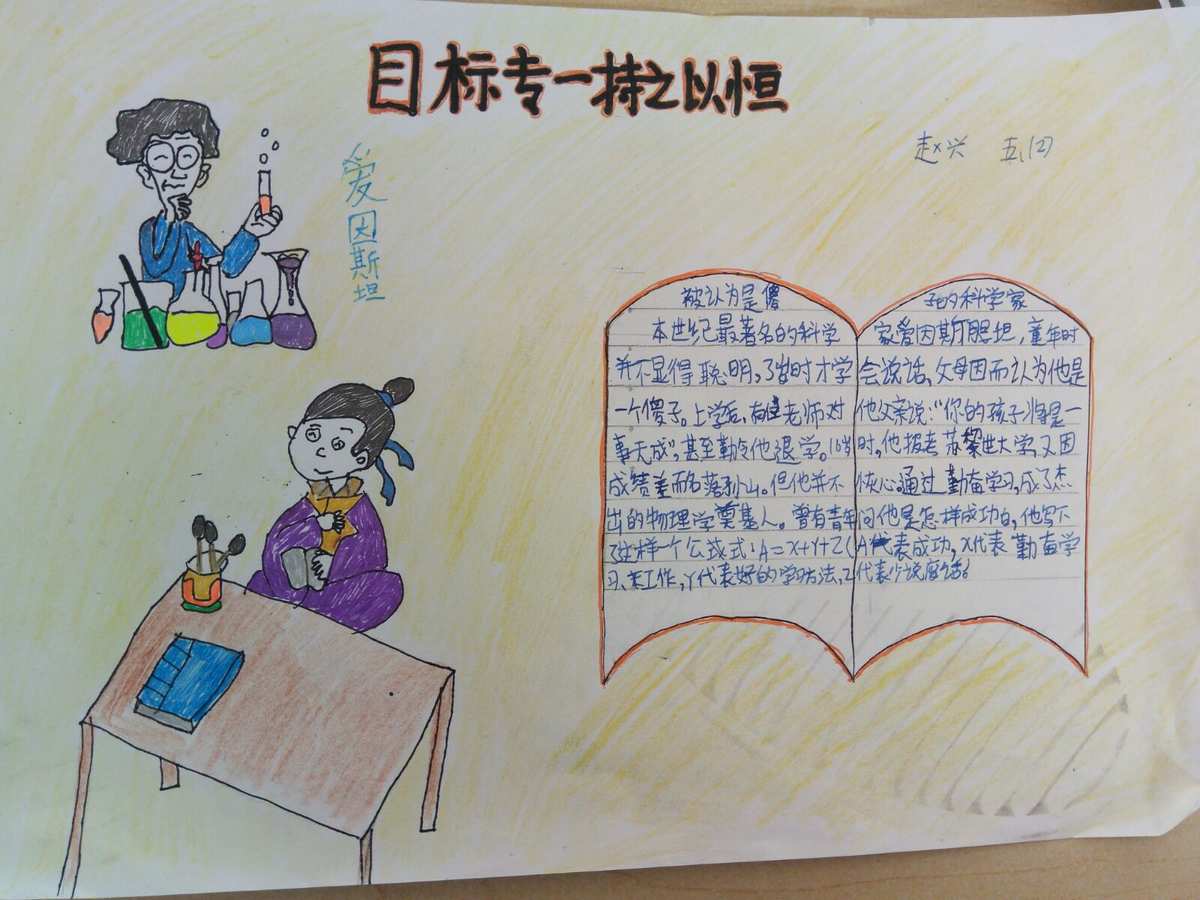 目标专一持之以恒
赵兴 五、(2)
爱因斯坦
被认为是傻子的科学家
本世纪最著名的科学家爱因斯坦,童年时
并不显得聪明。3岁时才学会说话,父母因而认为他是
一个傻子。上学后,有位老师对他父亲说:“你的孩子将是一
事无成”,甚至勒令他退学。16岁时,他报考苏黎世大学,又因
成绩差而名落孙山。但他并不灰心。通过勤奋学习,成了杰
出的物理学奠基人。曾有青年问他是怎样成功白,他写下
了这样一个公式:A=X+Y+Z(A代表成功,X代表勤奋学
习、工作,Y代表好的学习方法,Z代表少说废话。